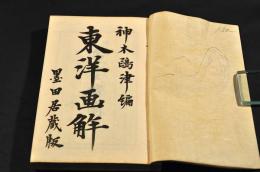 神木鷗津編
東洋画解
墨田居蔵版